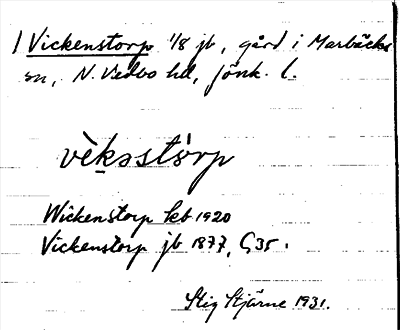 1 Vickenstorp 1/8 jb, gård i Marbäcks
sn, N. Vedbo hd, Jönk. l.
vèkəstòrp
Wickenstorp kb 1920
Vickenstorp jb 1877, G35.
Stig Stjärne 1931.